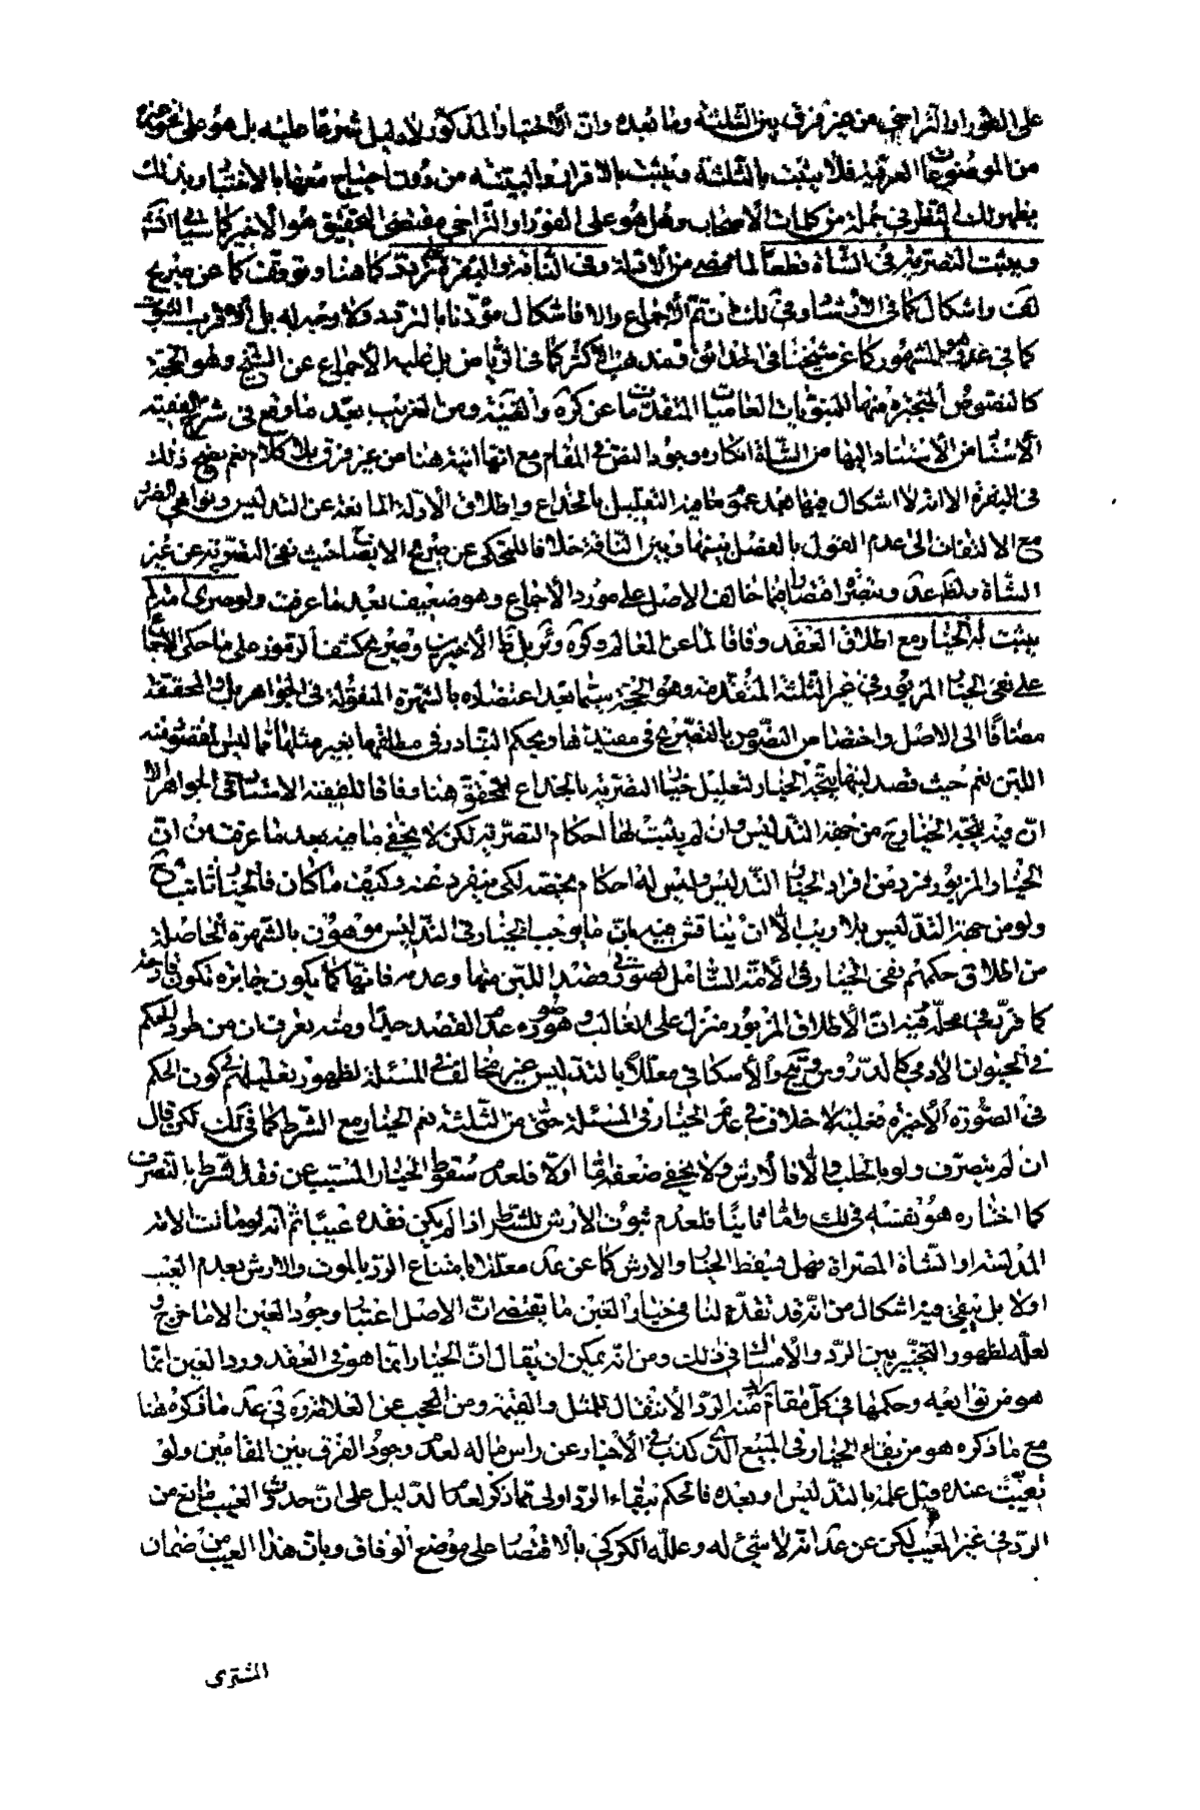 على الفور او التراخي من غير فرق بين الثلثة وما بعده وان الاختبار المذكور لا دليل شرعا عليه بل هو على نحو غيره
من الموضوعات العرفية فلا يثبت بالثلثة ويثبت بالاقرار والبينة من دون احتياج معها بالاختبار وبذلك
يظهر لك النظر في جملة من كلمات الاصحاب وهل هو على الفور او التراخي مقتضى التحقيق هو الاخير كما سيأتي انش
ويثبت التصرية في الشاة قطعا لما مضى من الادلة وفي الناقة والبقرة تردد كما هنا وتوقف كما عن صريح
لف واشكال كما في الارشاد وفي ذلك ان تم الاجماع والا فاشكال مؤذنا بالتردد ولا وجه له بل الاقرب الثبوت
كما في عد وهو المشهور كما عن شيخنا في الحدائق ومذهب الاكثر كما في الرياض بل عليه الاجماع عن الشيخ وهو الحجة
كالنصوص المنجبرة منها النبويات العاميات المتقدمات ما عن كره والغنية ومن الغريب بعد ما وقع في شرح الفقيه
الاستاد من الاستناد اليها من الشاة انكاره وجود النص في المقام مع انها اتية هنا من غير فرق بلا كلام نعم يتضح ذلك
في البقرة الا انه لا اشكال فيها بعد عموم ما فيه التعليل بالخداع واطلاق الادلة المانعة عن التدليس ونواهي الضرر
مع الالتفات الى عدم القول بالفصل بينها وبين الناقة خلافا للمحكي عن صريح الايضاح حيث نفى التصرية عن غير
الشاة وظ عد وتبصره اقتصارا فيما خالف الاصل على مورد الاجماع وهو ضعيف بعد ما عرفت ولو صرى امة لم
يثبت له الخيار مع اطلاق العقد وفاقا لما عن لمعالم وكره وئر بل ظ الاخيرين وصريح كشف الرموز على ما حكى الاجماع
على نفى الخيار المزبور في غير الثلثة المتقدمة وهو الحجة سيما بعد اعتضاده بالشهرة المنقولة في الجواهر بل والمحققة
مضافا الى الاصل واختصاص النصوص بالتصريح في مقيدتها وبحكم التبادر في مطلقها بغير مثلها مما ليس المقصود منه
اللبن نعم حيث قصد لبنها يتجه الخيار لتعليل خيار التصرية بالخداع المتحقق هنا وفاقا للفقيه الاستاد في الجواهر الا
ان فيه يتجه الخيار ح من جهة التدليس وان لم يثبت لها احكام التصرية لكن لا يخفى ما فيه بعد ما عرفت من ان
الخيار المزبور فرد من افراد الخيار التدليس وليس له احكام يختصه لكي ينفرد عنه وكيف ما كان فالخيار ثابت ح
ولو من جهة التدليس بلا ريب الا ان يناقش فيه بان ما يوجب الخيار في التدليس موهون بالشهرة الحاصلة
من اطلاق حكمهم بنفى الخيار في الامة الشامل لصورتي قصد اللبن منها وعدمه فانها كما يكون جابرة تكون قادحة
كما قرر في محله وفيه ان الاطلاق المزبور منزل على الغالب وهو صورة عدم القصد جيدا ومنه يعرف ان من طرد الحكم
في الحيوان الادمي كالدروس وتحرير الاسكافي معللا بالتدليس غير مخالف في المسئلة لظهور تعليلهم في كون الحكم
في الصورة الاخيرة فعليه لا خلاف في عدم الخيار في المسئلة حتى من الثلثة نعم الخيار مع الشرط كما في لك لكن قال
ان لم يتصرف ولو بالحلب والا فالارش ولا يخفى ضعفه اما اولا فلعدم سقوط الخيار المسبب عن فقد الشرط بالتصرف
كما اختاره هو نفسه في لك واما ثانيا فلعدم ثبوت الارش للشرط اذا لم يكن فقده عيبا ثم انه لو ماتت الامة
المدلسة او الشاة المصراة فهل يسقط الخيار والارش كما عن عد معللا بامتناع الرد بالموت والارش بعدم العيب
او لا بل يبقى فيه اشكال من انه قد تقدم لنا في خيار الغبن ما يقتضي ان الاصل اعتبار وجود العين الا ما خرج و
لعله لظهور التخيير بين الرد والامساك في ذلك ومن انه يمكن ان يقال ان الخيار انما هو في العقد ورد العين انما
هو من توابعه وحكمها في كل مقام تعذر الرد الانتقال للمثل والقيمة ومن العجب عن العلامة ره في عد ما ذكره هنا
مع ما ذكره هو من بقاء الخيار في المبيع الذي كذب في الاخبار عن راس ماله لعدم وجود الفرق بين المقامين ولو
تعيبت عنده قبل علمه بالتدليس او بعده فالحكم ببقاء الرد اولى مما ذكر لعدم الدليل على ان حدوث العيب مانع من
الرد في غير المعيب لكن عن عد انه لا شئ له وعلله الكركي بالاقتصار على موضع الوفاق وبان هذا العيب من ضمان
المشترى